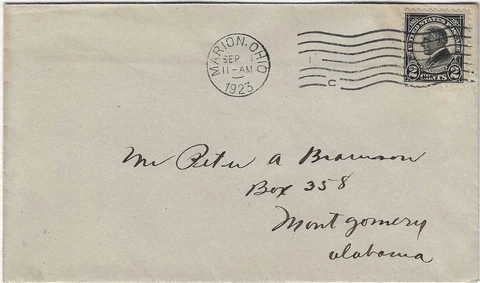 MARION, OHIO
SEP 1
11-AM
1923
C
UNITED STATES POSTAGE
2 CENTS 2
Mr Peter A Brannon
Box 358
Montgomery
Alabama